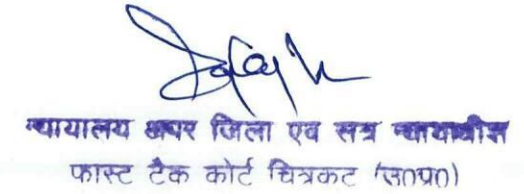 न्यायालय अपर जिला एवं सत्र न्यायाधीश
फास्ट टैक कोर्ट चित्रकट (उ०प्र०)